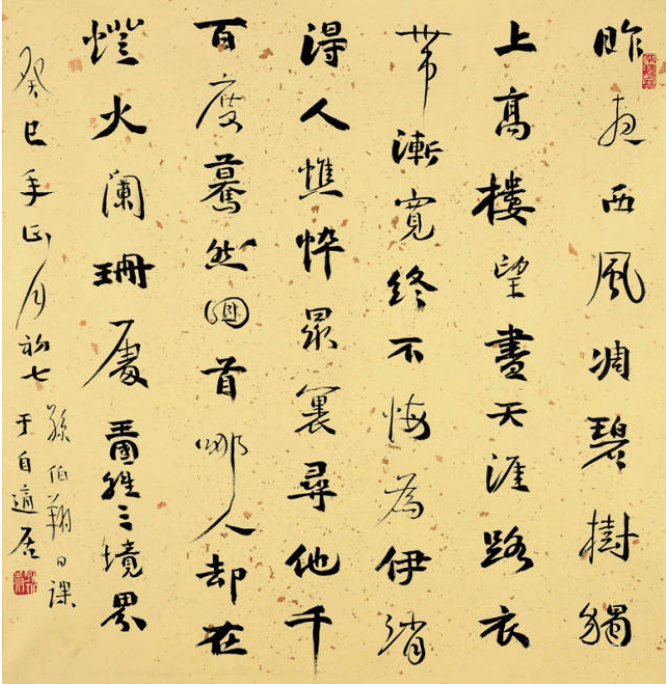 昨夜西風凋碧樹獨
上高樓望盡天涯路衣
帶漸寬終不悔為伊消
得人憔悴眾裏尋他千
百度驀然回首哪人却在
燈火闌珊處王國維三境界
癸巳年正月初七
孫伯翔日課
于自適居